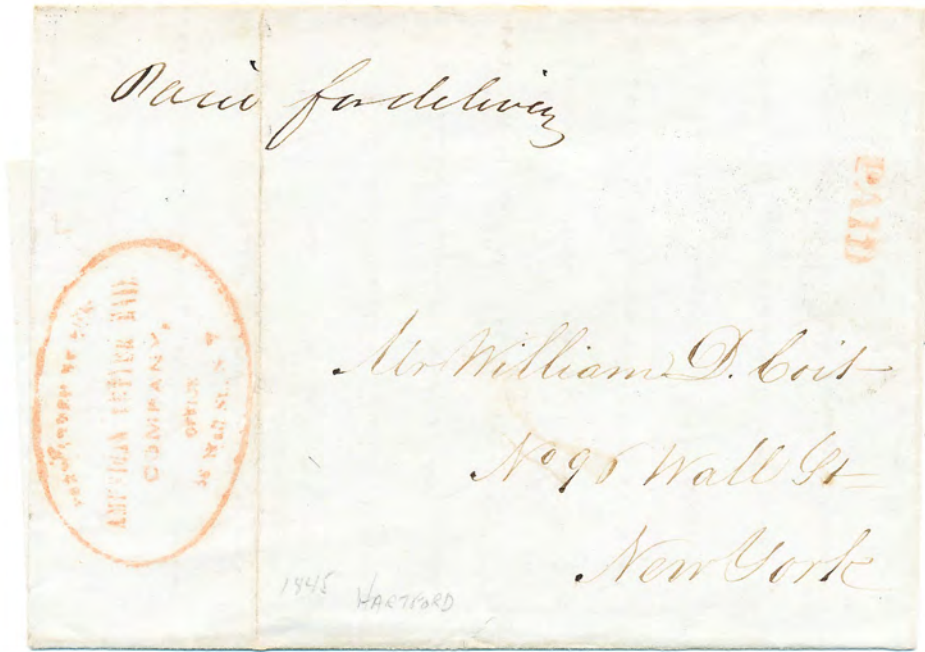 Paid for delivery
PAID
FORWARDED BY THE
AMERICAN LETTER MAIL
COMPANY,
OFFICE
56 Wall St. N.Y.
Mr William D. Coit
No 90 Wall St
New York
1845 HARTFORD